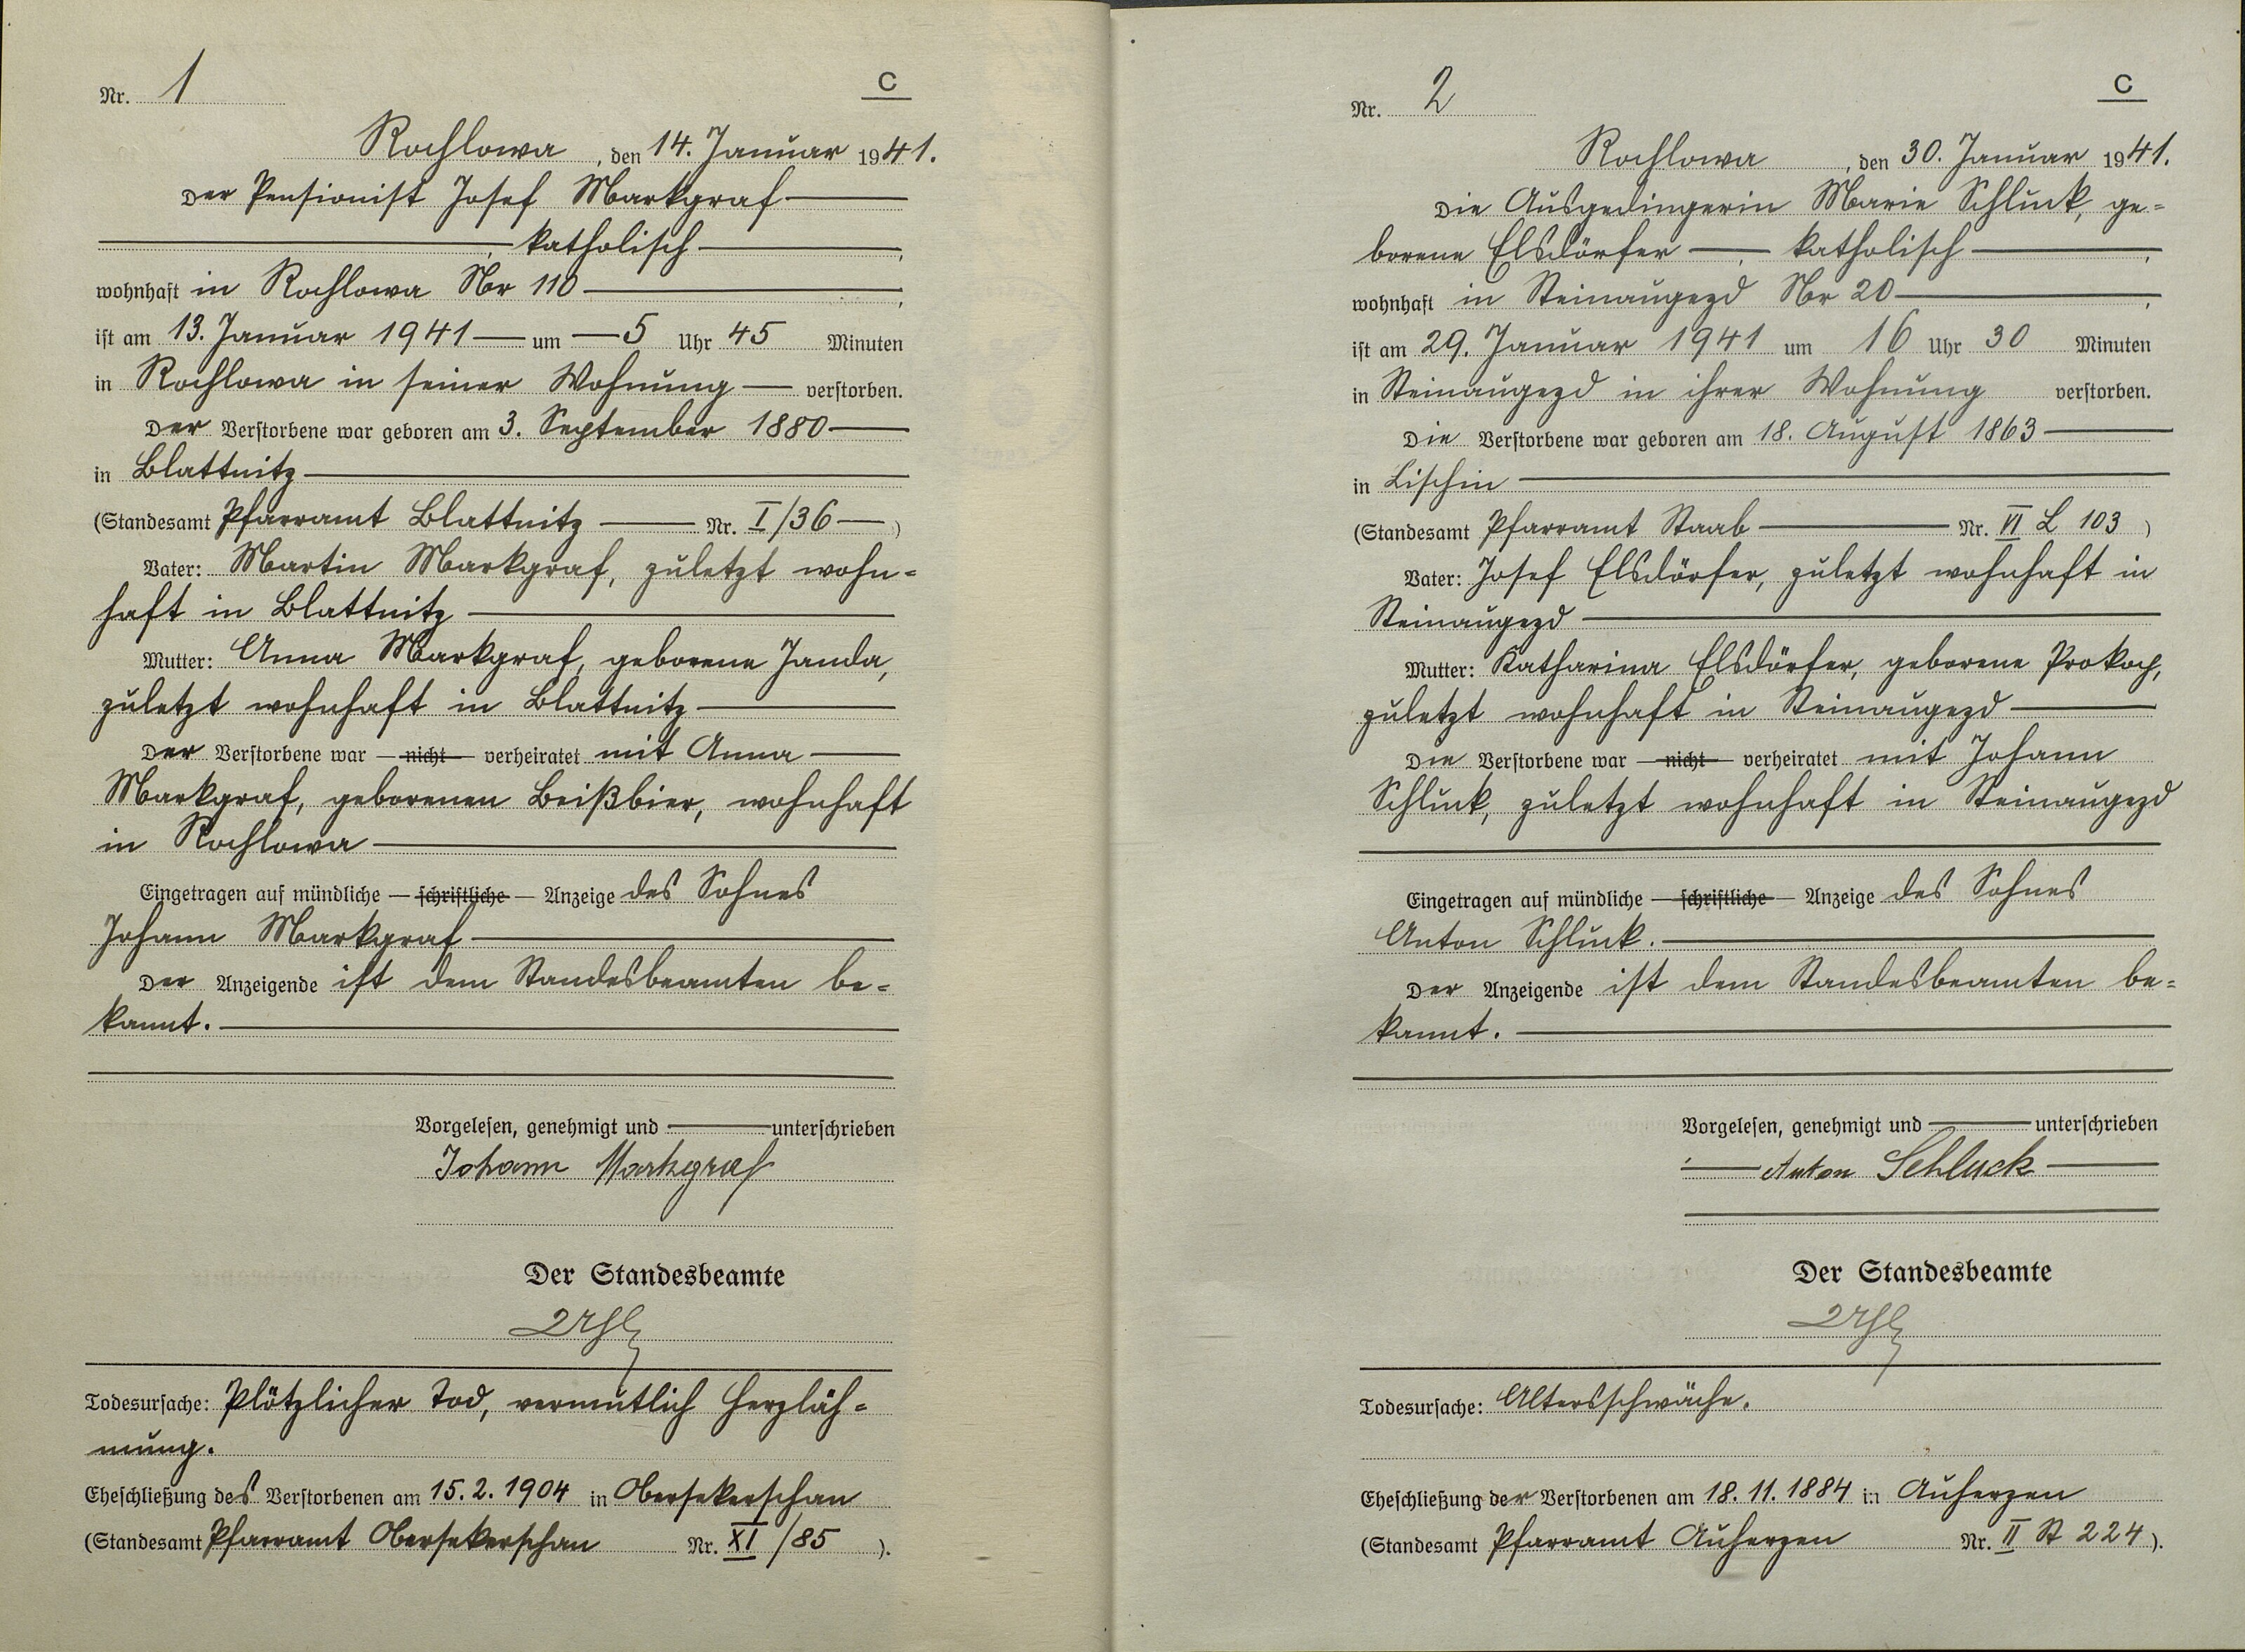 Nr. 1
C
Rochlowa, den 14. Januar 1941.
Der Pensionist Josef Markgraf
, katholisch ,
wohnhaft in Rochlowa Nr 110 ,
ist am 13. Januar 1941 um 5 Uhr 45 Minuten
in Rochlowa in seiner Wohnung verstorben.
Der Verstorbene war geboren am 3. September 1880
in Blattnitz
(Standesamt Pfarramt Blattnitz Nr. I/36 )
Vater: Martin Markgraf, zuletzt wohn=
haft in Blattnitz
Mutter: Anna Markgraf, geborene Janda,
zuletzt wohnhaft in Blattnitz
Der Verstorbene war — nicht — verheiratet mit Anna
Markgraf, geborenen Beißbier, wohnhaft
in Rochlowa
Eingetragen auf mündliche — schriftliche — Anzeige des Sohnes
Johann Markgraf
Der Anzeigende ist dem Standesbeamten be=
kannt.
Vorgelesen, genehmigt und unterschrieben
Johann Markgraf
Der Standesbeamte
Todesursache: Plötzlicher Tod, vermutlich Herzläh=
mung.
Eheschließung des Verstorbenen am 15.2.1904 in Obersekerschan
(Standesamt Pfarramt Obersekerschan Nr. XI/85 ).
Nr. 2
C
Rochlowa, den 30. Januar 1941.
Die Ausgedingerin Marie Schluck, ge=
borene Elsdörfer , katholisch ,
wohnhaft in Steinaugezd Nr 20 ,
ist am 29. Januar 1941 um 16 Uhr 30 Minuten
in Steinaugezd in ihrer Wohnung verstorben.
Die Verstorbene war geboren am 18. August 1863
in Lischin
(Standesamt Pfarramt Staab Nr. VI L 103 )
Vater: Josef Elsdörfer, zuletzt wohnhaft in
Steinaugezd
Mutter: Katharina Elsdörfer, geborene Prokoch,
zuletzt wohnhaft in Steinaugezd
Die Verstorbene war — nicht — verheiratet mit Johann
Schluck, zuletzt wohnhaft in Steinaugezd
Eingetragen auf mündliche — schriftliche — Anzeige des Sohnes
Anton Schluck.
Der Anzeigende ist dem Standesbeamten be=
kannt.
Vorgelesen, genehmigt und unterschrieben
Anton Schluck
Der Standesbeamte
Todesursache: Altersschwäche.
Eheschließung der Verstorbenen am 18.11.1884 in Auherzen
(Standesamt Pfarramt Auherzen Nr. II St 224 ).